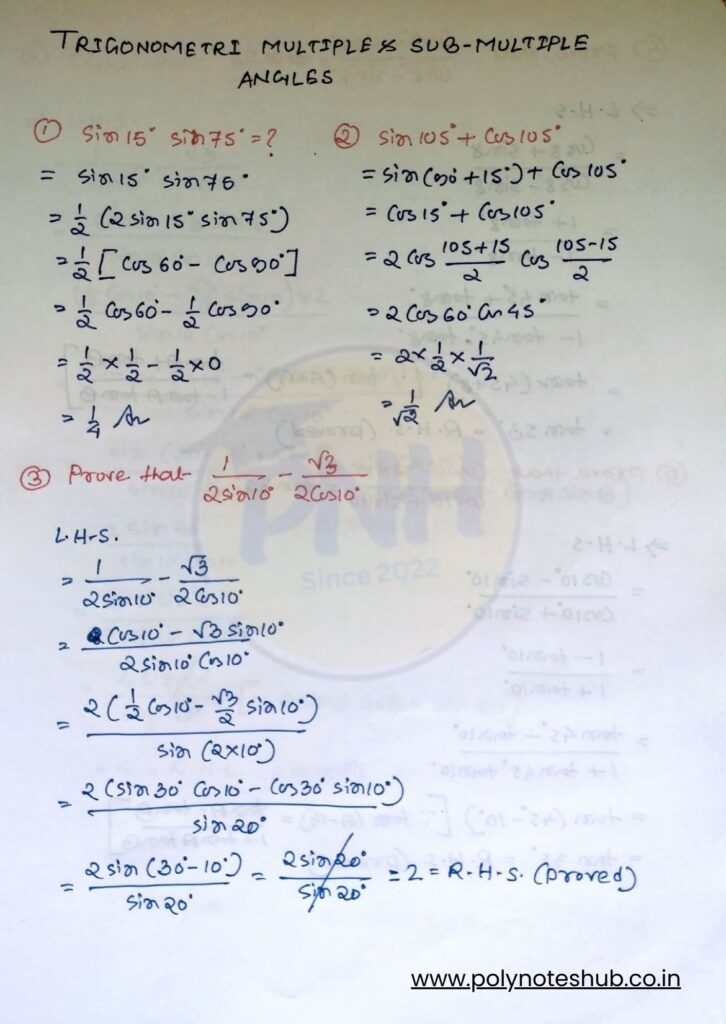 TRIGONOMETRI MULTIPLE & SUB-MULTIPLE
ANGLES
① Sin 15° sin 75° = ?
= sin 15° sin 75°
= 1/2 (2 sin 15° sin 75°)
= 1/2 [Cos 60° - Cos 90°]
= 1/2 Cos 60° - 1/2 Cos 90°
= 1/2 × 1/2 - 1/2 × 0
= 1/4 An
② sin 105° + Cos 105°
= sin (90° + 15°) + Cos 105°
= Cos 15° + Cos 105°
= 2 Cos (105+15)/2 Cos (105-15)/2
= 2 Cos 60° Cos 45°
= 2 × 1/2 × 1/√2
= 1/√2 An
③ Prove that 1/(2 sin 10°) - √3/(2 Cos 10°)
L.H.S.
= 1/(2 sin 10°) - √3/(2 Cos 10°)
= (Cos 10° - √3 sin 10°)/(2 sin 10° Cos 10°)
= 2 (1/2 Cos 10° - √3/2 sin 10°)/sin (2×10°)
= 2 (sin 30° Cos 10° - Cos 30° sin 10°)/sin 20°
= 2 sin (30° - 10°)/sin 20° = 2 sin 20°/sin 20° = 2 = R.H.S. (proved)
PNH
Since 2022
www.polynoteshub.co.in